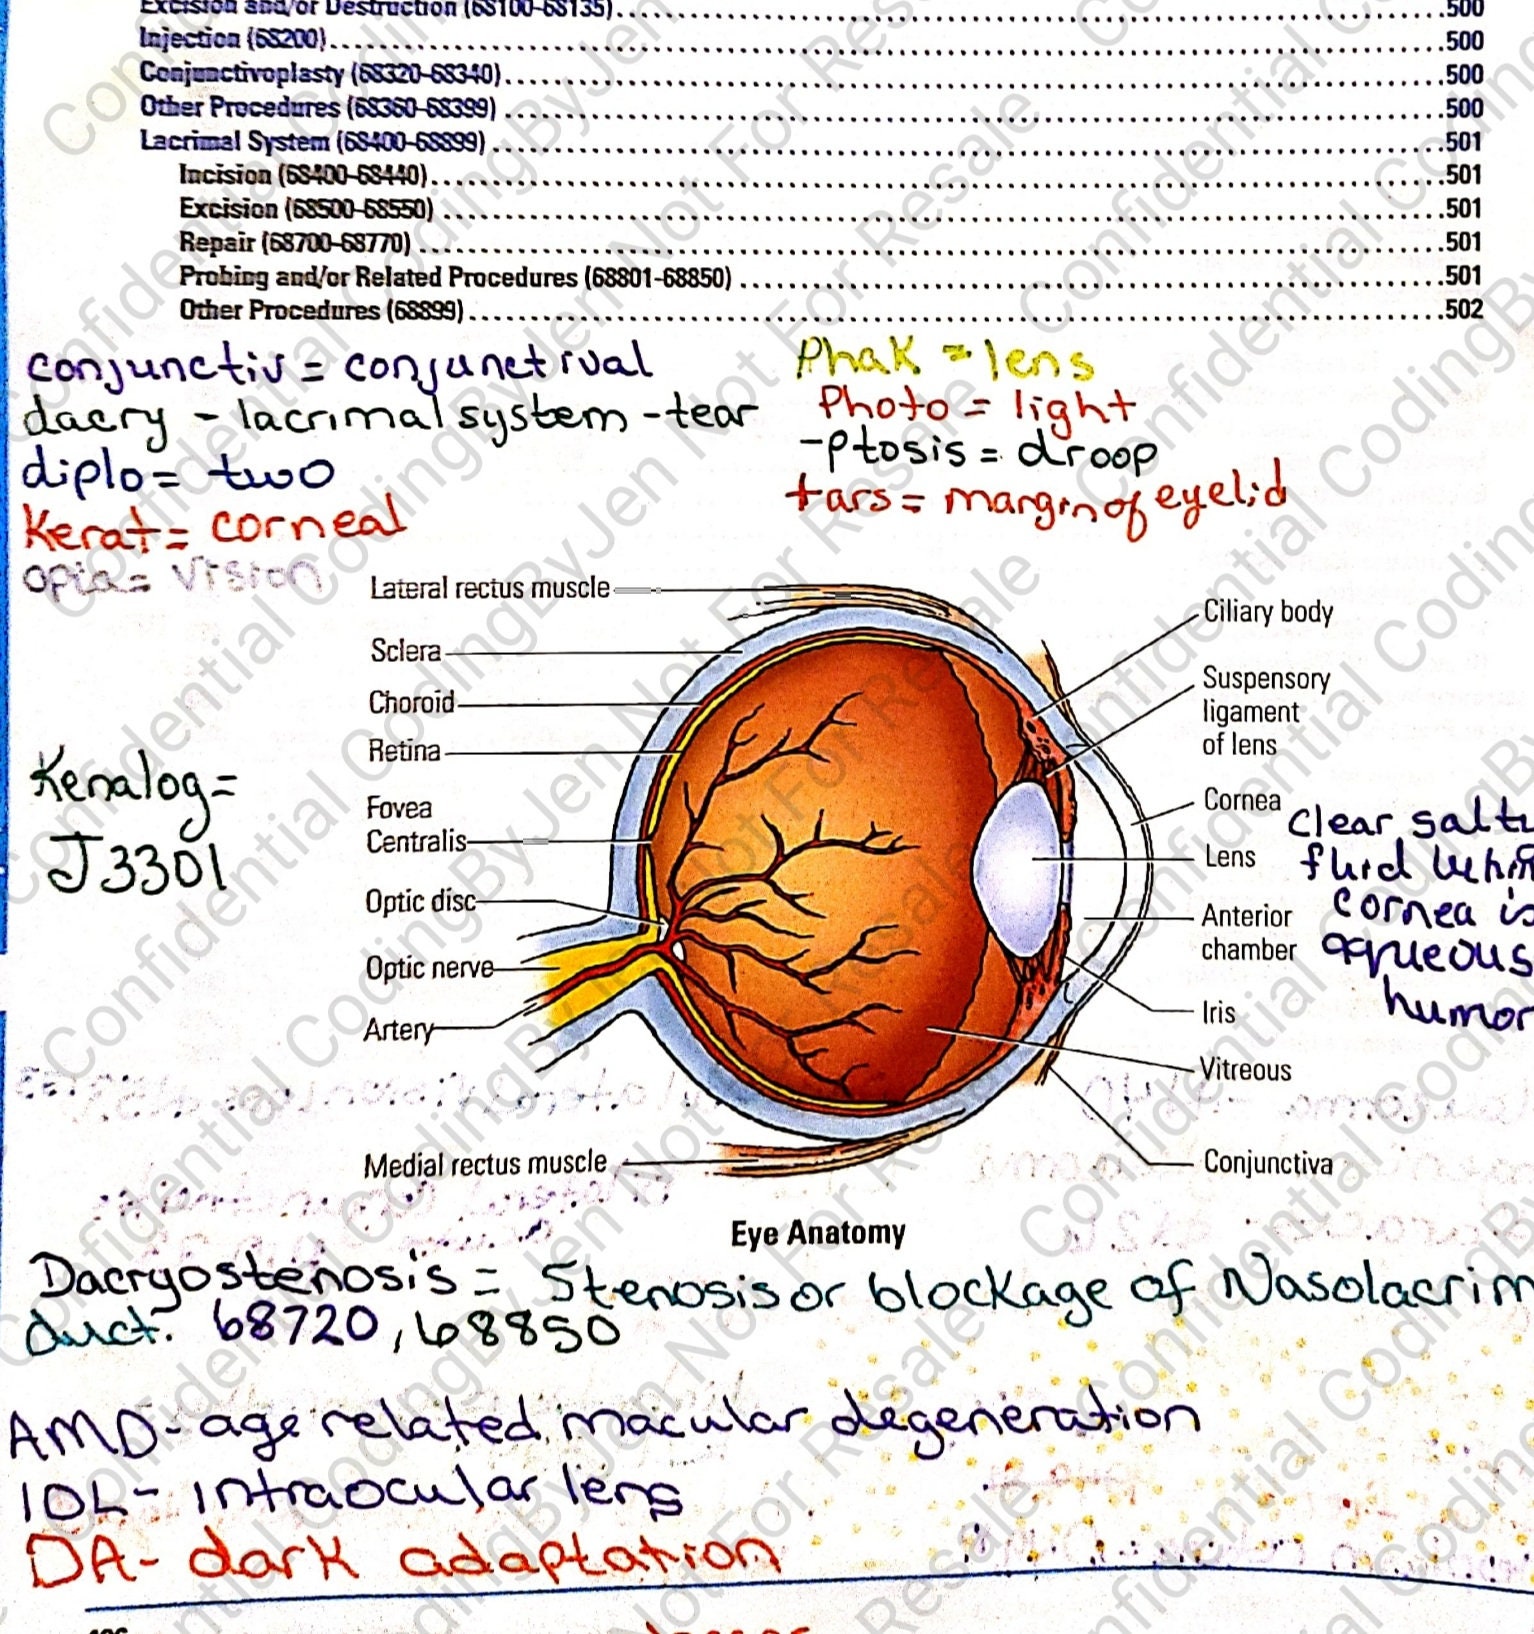 Excision and/or Destruction (68100-68135) 500
Injection (68200) 500
Conjunctivoplasty (68320-68340) 500
Other Procedures (68360-68399) 500
Lacrimal System (68400-68899) 501
Incision (68400-68440) 501
Excision (68500-68550) 501
Repair (68700-68770) 501
Probing and/or Related Procedures (68801-68850) 501
Other Procedures (68899) 502
conjunctiv = conjunctival
dacry - lacrimal system - tear
diplo = two
Kerat = corneal
opia = vision
Phak = lens
Photo = light
-Ptosis = droop
tars = margin of eyelid
Kenalog =
J3301
Lateral rectus muscle
Sclera
Choroid
Retina
Fovea
Centralis
Optic disc
Optic nerve
Artery
Medial rectus muscle
Ciliary body
Suspensory
ligament
of lens
Cornea
Lens
Anterior
chamber
Iris
Vitreous
Conjunctiva
clear salt
fluid
cornea is
aqueous
humor
Eye Anatomy
Dacryostenosis = Stenosis or blockage of Nasolacrim
duct. 68720, 68850
AMD - age related macular degeneration
IOL - intraocular lens
DA - dark adaptation
Confidential CodingByJen Not For Resale